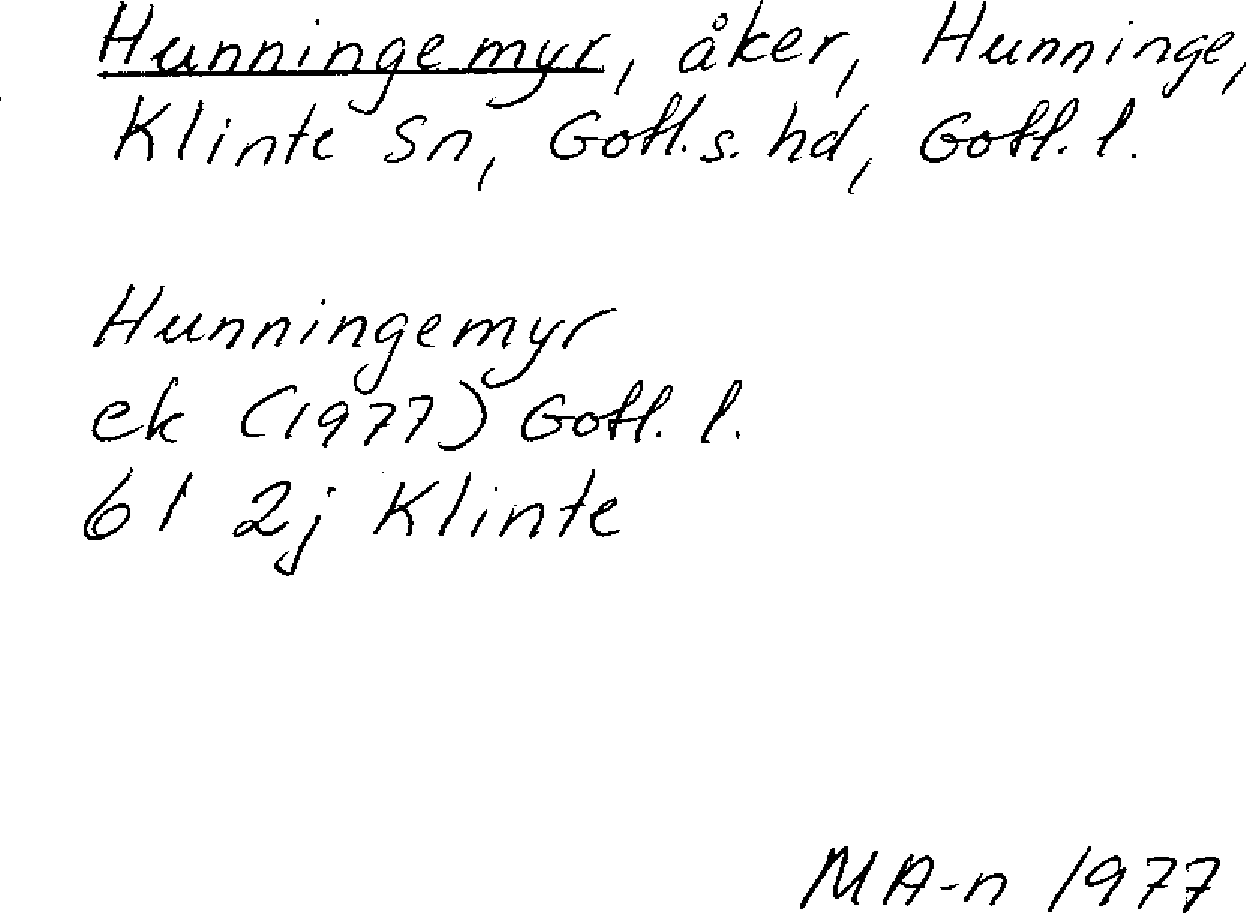 Hunningemyr, åker, Hunninge,
Klinte sn, Gotl. s. hd, Gotl. l.
Hunningemyr
ek (1977) Gotl. l.
61 2j Klinte
MA-n 1977